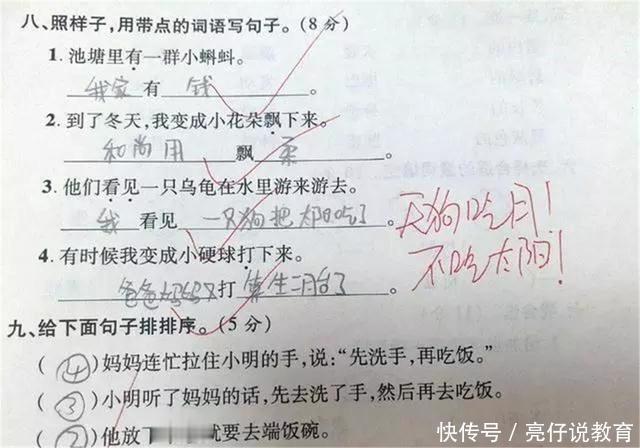 八、照样子,用带点的词语写句子。(8分)
1. 池塘里有一群小蝌蚪。
我家 有 钱 。
2. 到了冬天,我变成小花朵飘下来。
和尚用 飘柔 。
3. 他们看见一只乌龟在水里游来游去。
我 看见 一只狗把太阳吃了 。
天狗吃月!
不吃太阳!
4. 有时候我变成小硬球打下来。
爸爸妈妈又打算生二月台了 。
九、给下面句子排排序。(5分)
(④)妈妈连忙拉住小明的手,说:“先洗手,再吃饭。”
(③)小明听了妈妈的话,先去洗了手,然后再去吃饭。
(②)他放下 就要去端饭碗。
快传号 / 亮仔说教育